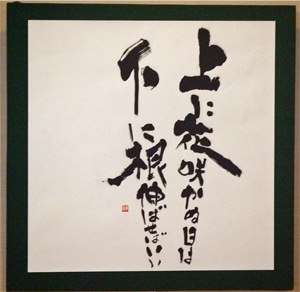 上に花咲かぬ日は
下に根伸ばせばいい